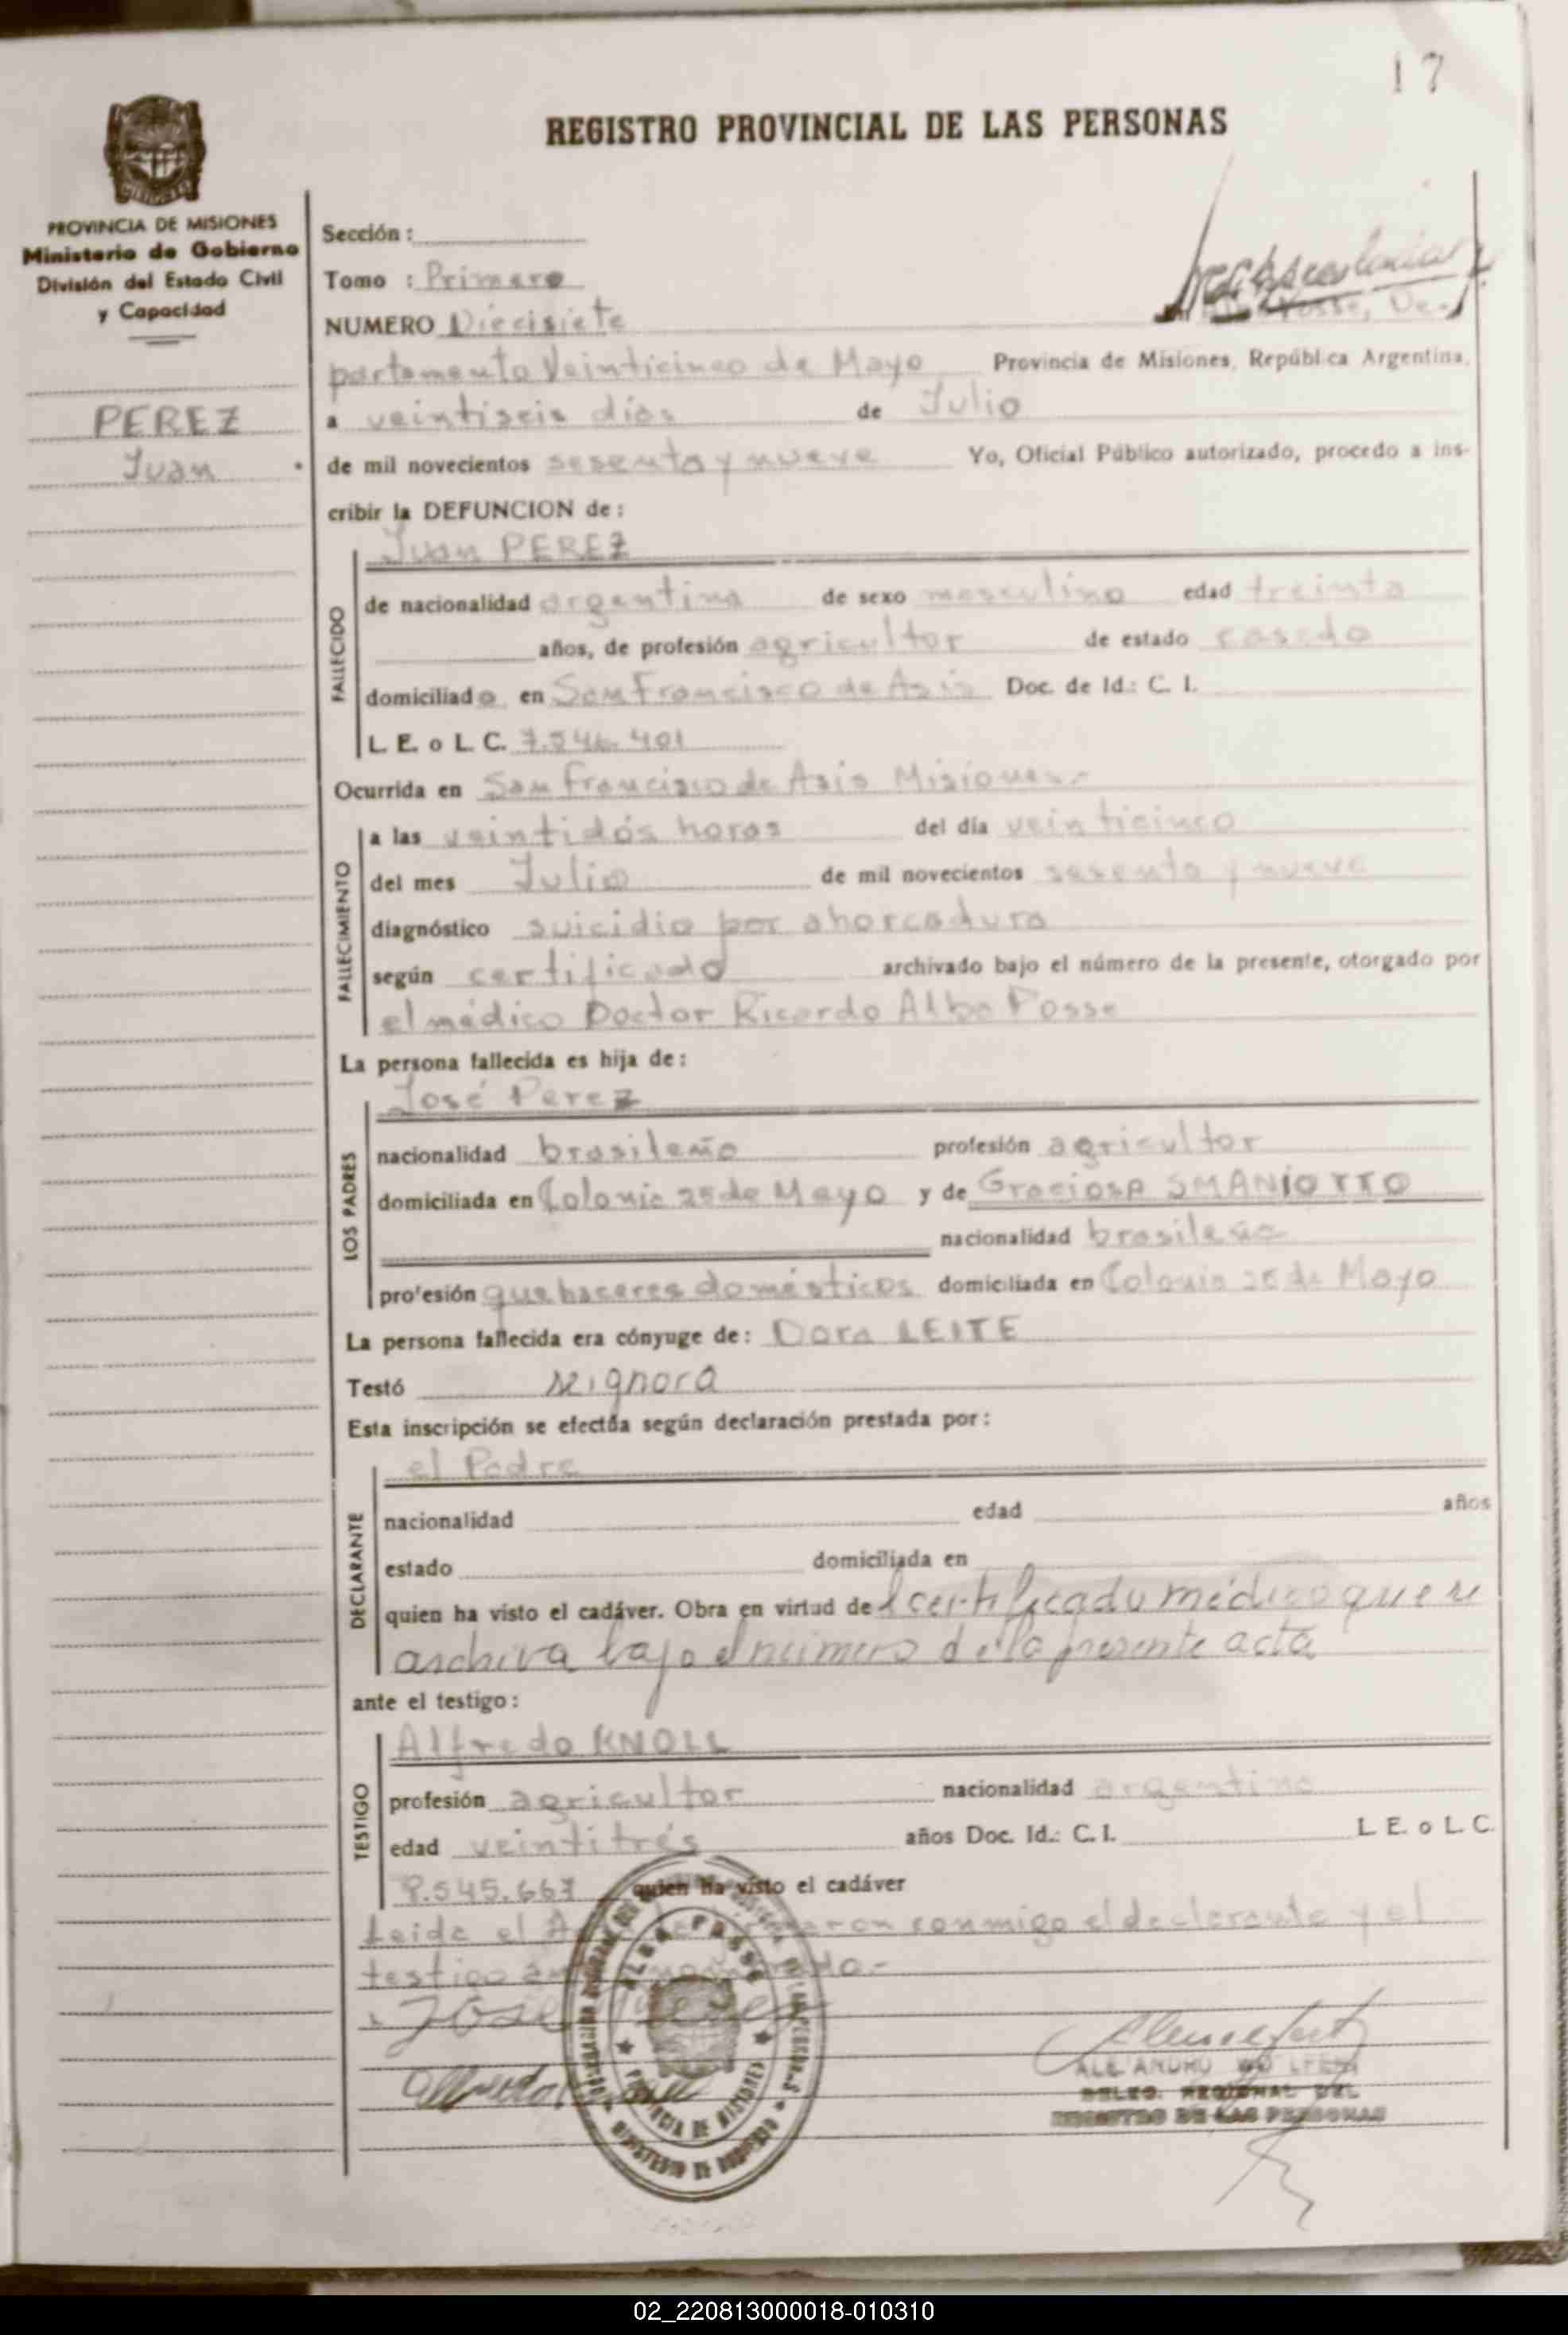 17
REGISTRO PROVINCIAL DE LAS PERSONAS
PROVINCIA DE MISIONES
Ministerio de Gobierno
División del Estado Civil
y Capacidad
PEREZ
Juan
Sección:
Tomo : Primero
NUMERO Diecisiete Posse, De-
partamento Veinticinco de Mayo Provincia de Misiones, República Argentina,
a veintiseis días de Julio
de mil novecientos sesenta y nueve Yo, Oficial Público autorizado, procedo a ins-
cribir la DEFUNCION de:
FALLECIDO
Juan PEREZ
de nacionalidad argentina de sexo masculino edad treinta
años, de profesión agricultor de estado casado
domiciliado en San Francisco de Asis Doc. de Id.: C. I.
L. E. o L. C. 7.546.401
Ocurrida en San Francisco de Asis Misiones.-
FALLECIMIENTO
a las veintidós horas del día veinticinco
del mes Julio de mil novecientos sesenta y nueve
diagnóstico suicidio por ahorcadura
según certificado archivado bajo el número de la presente, otorgado por
el médico Doctor Ricardo Alba Posse
La persona fallecida es hija de:
LOS PADRES
José Perez
nacionalidad brasileño profesión agricultor
domiciliada en Colonia 25 de Mayo y de Graciosa SMANIOTTO
nacionalidad brasileña
profesión quehaceres domésticos domiciliada en Colonia 25 de Mayo
La persona fallecida era cónyuge de: Dora LEITE
Testó se ignora
Esta inscripción se efectúa según declaración prestada por:
DECLARANTE
el Padre
nacionalidad edad años
estado domiciliada en
quien ha visto el cadáver. Obra en virtud del certificado médico que se
archiva bajo el número de la presente acta
ante el testigo:
TESTIGO
Alfredo KNOLL
profesión agricultor nacionalidad argentino
edad veintitrés años Doc. Id.: C. I. L. E. o L. C.
8.545.667 quien ha visto el cadáver
Leida el conmigo el declarante y el
testigo
José Perez
Alfredo
ALBA POSSE
PROVINCIA DE MISIONES
MINISTERIO DE GOBIERNO
ALEJANDRO
DELEG. REGIONAL DEL
REGISTRO DE LAS PERSONAS
02_220813000018-010310